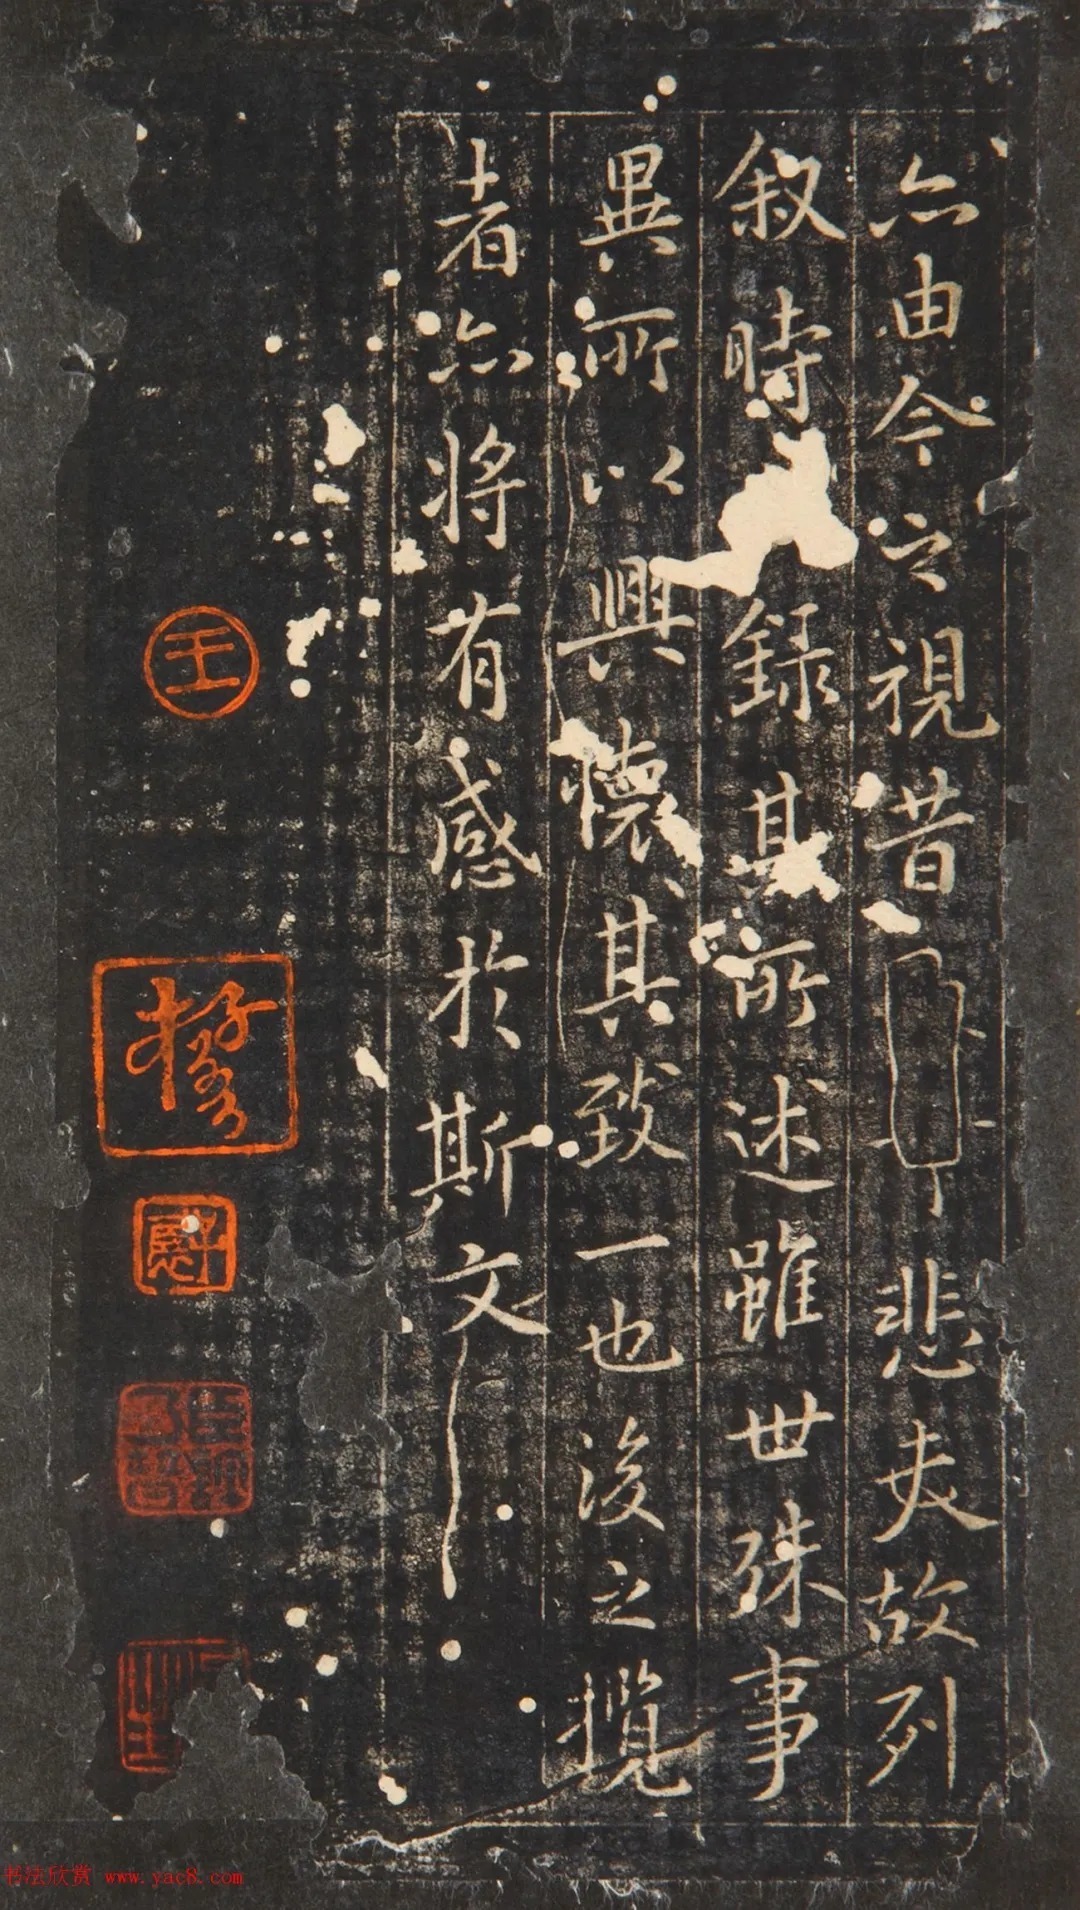 亦由今之視昔悲夫故列
叙時錄其所述雖世殊事
異所以興懷其致一也後之攬
者亦將有感於斯文
王
书法欣赏 www.yac8.com